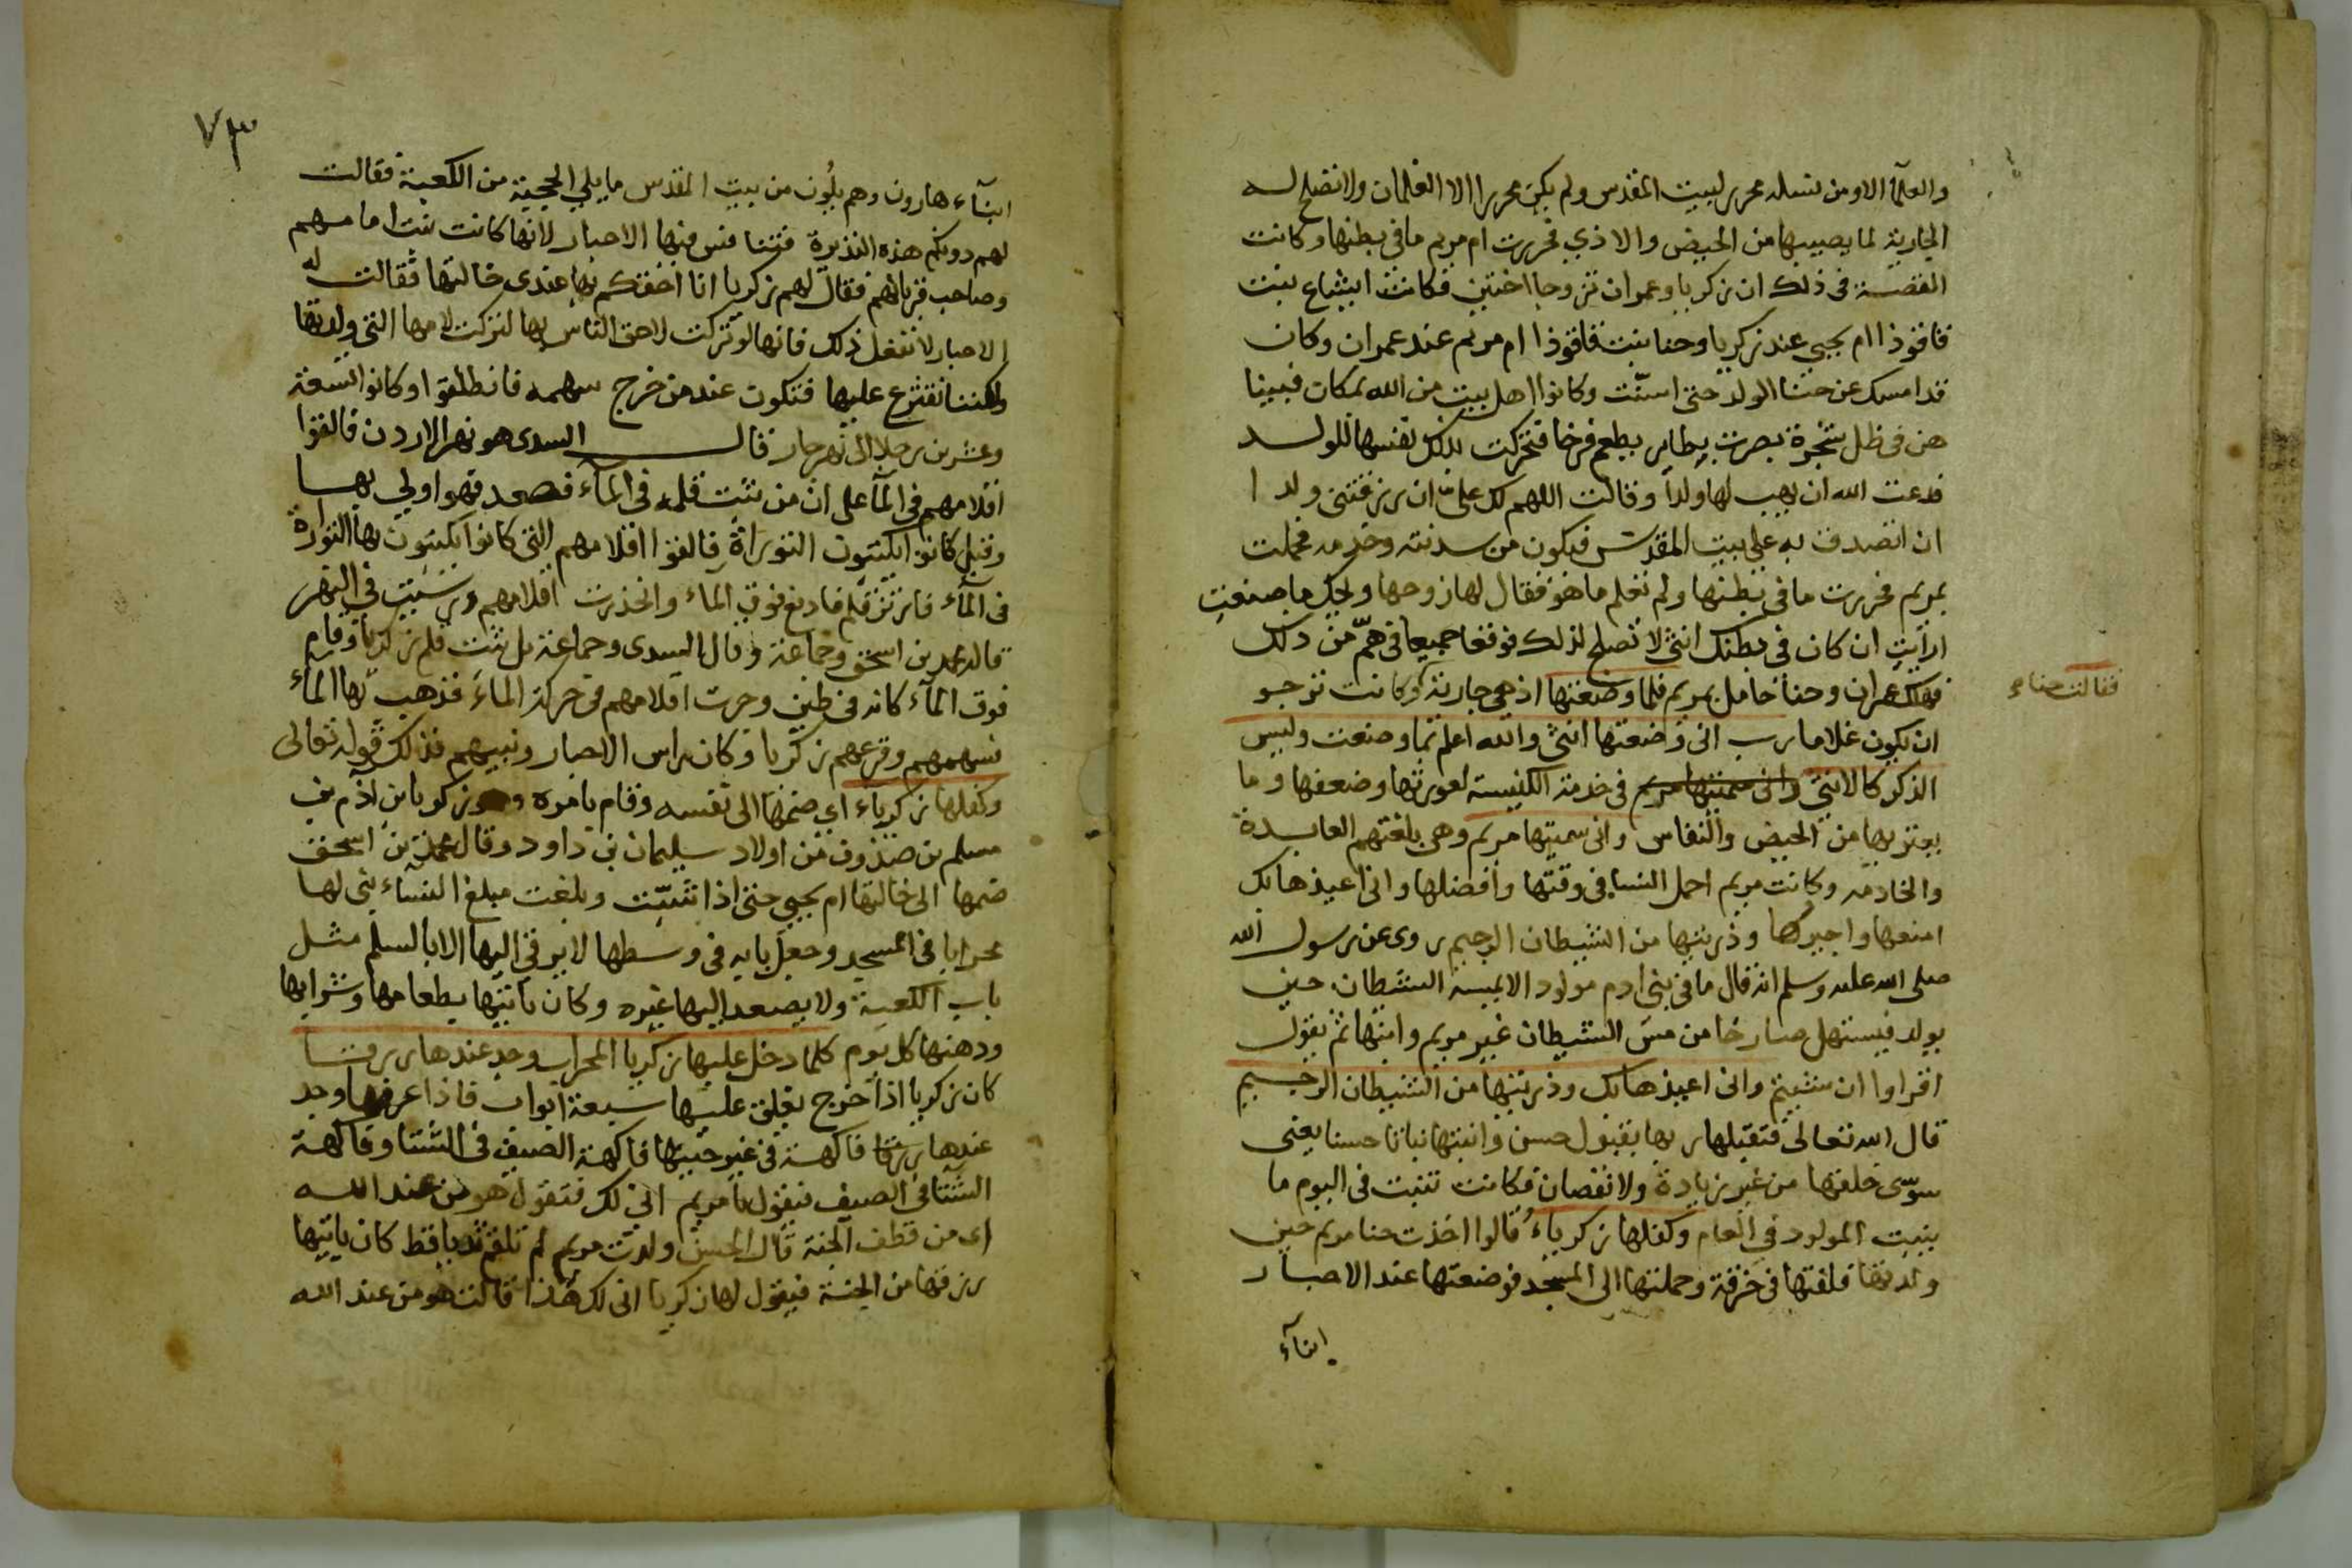 والعلمآ الا ومن نسله محرر لبيت المقدس ولم يكن محررا الا الغلمان ولا تصلح له
الجارية لما يصيبها من الحيض والاذي فحررت ام مريم ما في بطنها وكانت
القصة في ذلك ان زكريا وعمران تزوجا اختين فكانت ايشاع بنت
فاقوذا ام يحيي عند زكريا وحنا بنت فاقوذا ام مريم عند عمران وكان
قد امسك عن حنا الولد حتى اسنّت وكانوا اهل بيت من الله بمكان فبينا
هن في ظل شجرة بصرت بطاير يطعم فرخا فتحركت بذلك نفسها للولد
فدعت الله ان يهب لها ولداً وقالت اللهم لك علىّ ان رزقتني ولدا
ان اتصدق به علي بيت المقدس فيكون من سدنته وخدمه فحملت
بمريم فحررت ما في بطنها ولم تعلم ما هو فقال لها زوجها ويحك ما صنعتِ
ارأيتِ ان كان في بطنك انثى لا تصلح لذلك فوقعا جميعا في همّ من ذلك
فهلك عمران وحنا حامل بمريم فلما وضعتها اذ هي جارية وكانت ترجو
فقالت حناء
ان يكون غلاما رب اني وضعتها انثى والله اعلم بما وضعت وليس
الذكر كالانثي واني سميتها مريم في خدمة الكنيسة لعورتها وضعفها وما
يعتريها من الحيض والنفاس واني سميتها مريم وهي بلغتهم العابدة
والخادمه وكانت مريم اجمل النسا في وقتها وافضلها واني اعيذها بك
امنعها واجيرها وذريتها من الشيطان الرجيم روى عن رسول الله
صلى الله عليه وسلم انه قال ما في بني ادم مولود الا يمسه الشيطان حين
يولد فيستهل صارخا من مس الشيطان غير مريم وابنها ثم يقول
اقراوا ان شئتم واني اعيذها بك وذريتها من الشيطان الرجيم
قال الله تعالى فتقبلها ربها بقبول حسن وانبتها نباتا حسنا يعنى
سوّى خلقها من غير زيادة ولا نقصان فكانت تنبت في اليوم ما
ينبت المولود في العام وكفلها زكرياءُ قالوا اخذت حنا مريم حين
ولدتها فلفتها في خرقة وحملتها الى المسجد فوضعتها عند الاحبار
ابنآء
٧٣
ابنآء هارون وهم يلُون من بيت المقدس ما يلي الحجبة من الكعبة فقالت
لهم دونكم هذه النذيرة فتنافس فيها الاحبار لانها كانت بنت امامهم
وصاحب قربانهم فقال لهم زكريا انا احقكم بها عندي خالتها فقالت له
الاحبار لا تفعل ذلك فانها لو تركت لاحق الناس بها لتركت لامها التي ولدتها
ولكننا نقترع عليها فتكون عند من خرج سهمه فانطلقوا وكانوا تسعة
وعشرين رجلا الى نهر جار قال السدى هو نهر الاردن فالقوا
اقلامهم في المآ على ان من ثبت قلمه في المآء فصعد فهو اولي بها
وقيل كانوا يكتبون التوراة فالقوا اقلامهم التي كانوا يكتبون بها التوراة
في المآء فارتز قلم فارتفع فوق المآء وانحدرت اقلامهم ورسبت في النهر
قاله محمد بن اسحق وجماعة وقال السدى وجماعة بل ثبت قلم زكريا وقام
فوق المآء كانه في طين وجرت اقلامهم في حركة الماء فذهب بها المآء
فسهمهم وقرعهم زكريا وكان راس الاحبار ونبيهم فذلك قوله تعالى
وكفلها زكرياء اي ضمها الى نفسه وقام بامره وهو زكريا بن آدم بن
مسلم بن صدوق من اولاد سليمان بن داود وقال محمد بن اسحق
ضمها الى خالتها ام يحيي حتى اذا شبّت وبلغت مبلغ النساء بني لها
محرابا في المسجد وجعل بابه في وسطها لا يرقي اليها الا بالسلم مثل
باب الكعبة ولا يصعد اليها غيره وكان ياتيها بطعامها وشرابها
ودهنها كل يوم كلما دخل عليها زكريا المحراب وجد عندها رزقا
كان زكريا اذا خرج يغلق عليها سبعة ابواب فاذا وجد
عندها رزقا فاكهة في غير حينها فاكهة الصيف في الشتا وفاكهة
الشتا في الصيف فيقول يا مريم اني لك فتقول هو من عند الله
اى من قطف الجنة قال الحسن ولدت مريم لم تلقم ثديا قط كان ياتيها
رزقها من الجنة فيقول لها زكريا اني لك هذا قالت هو من عند الله